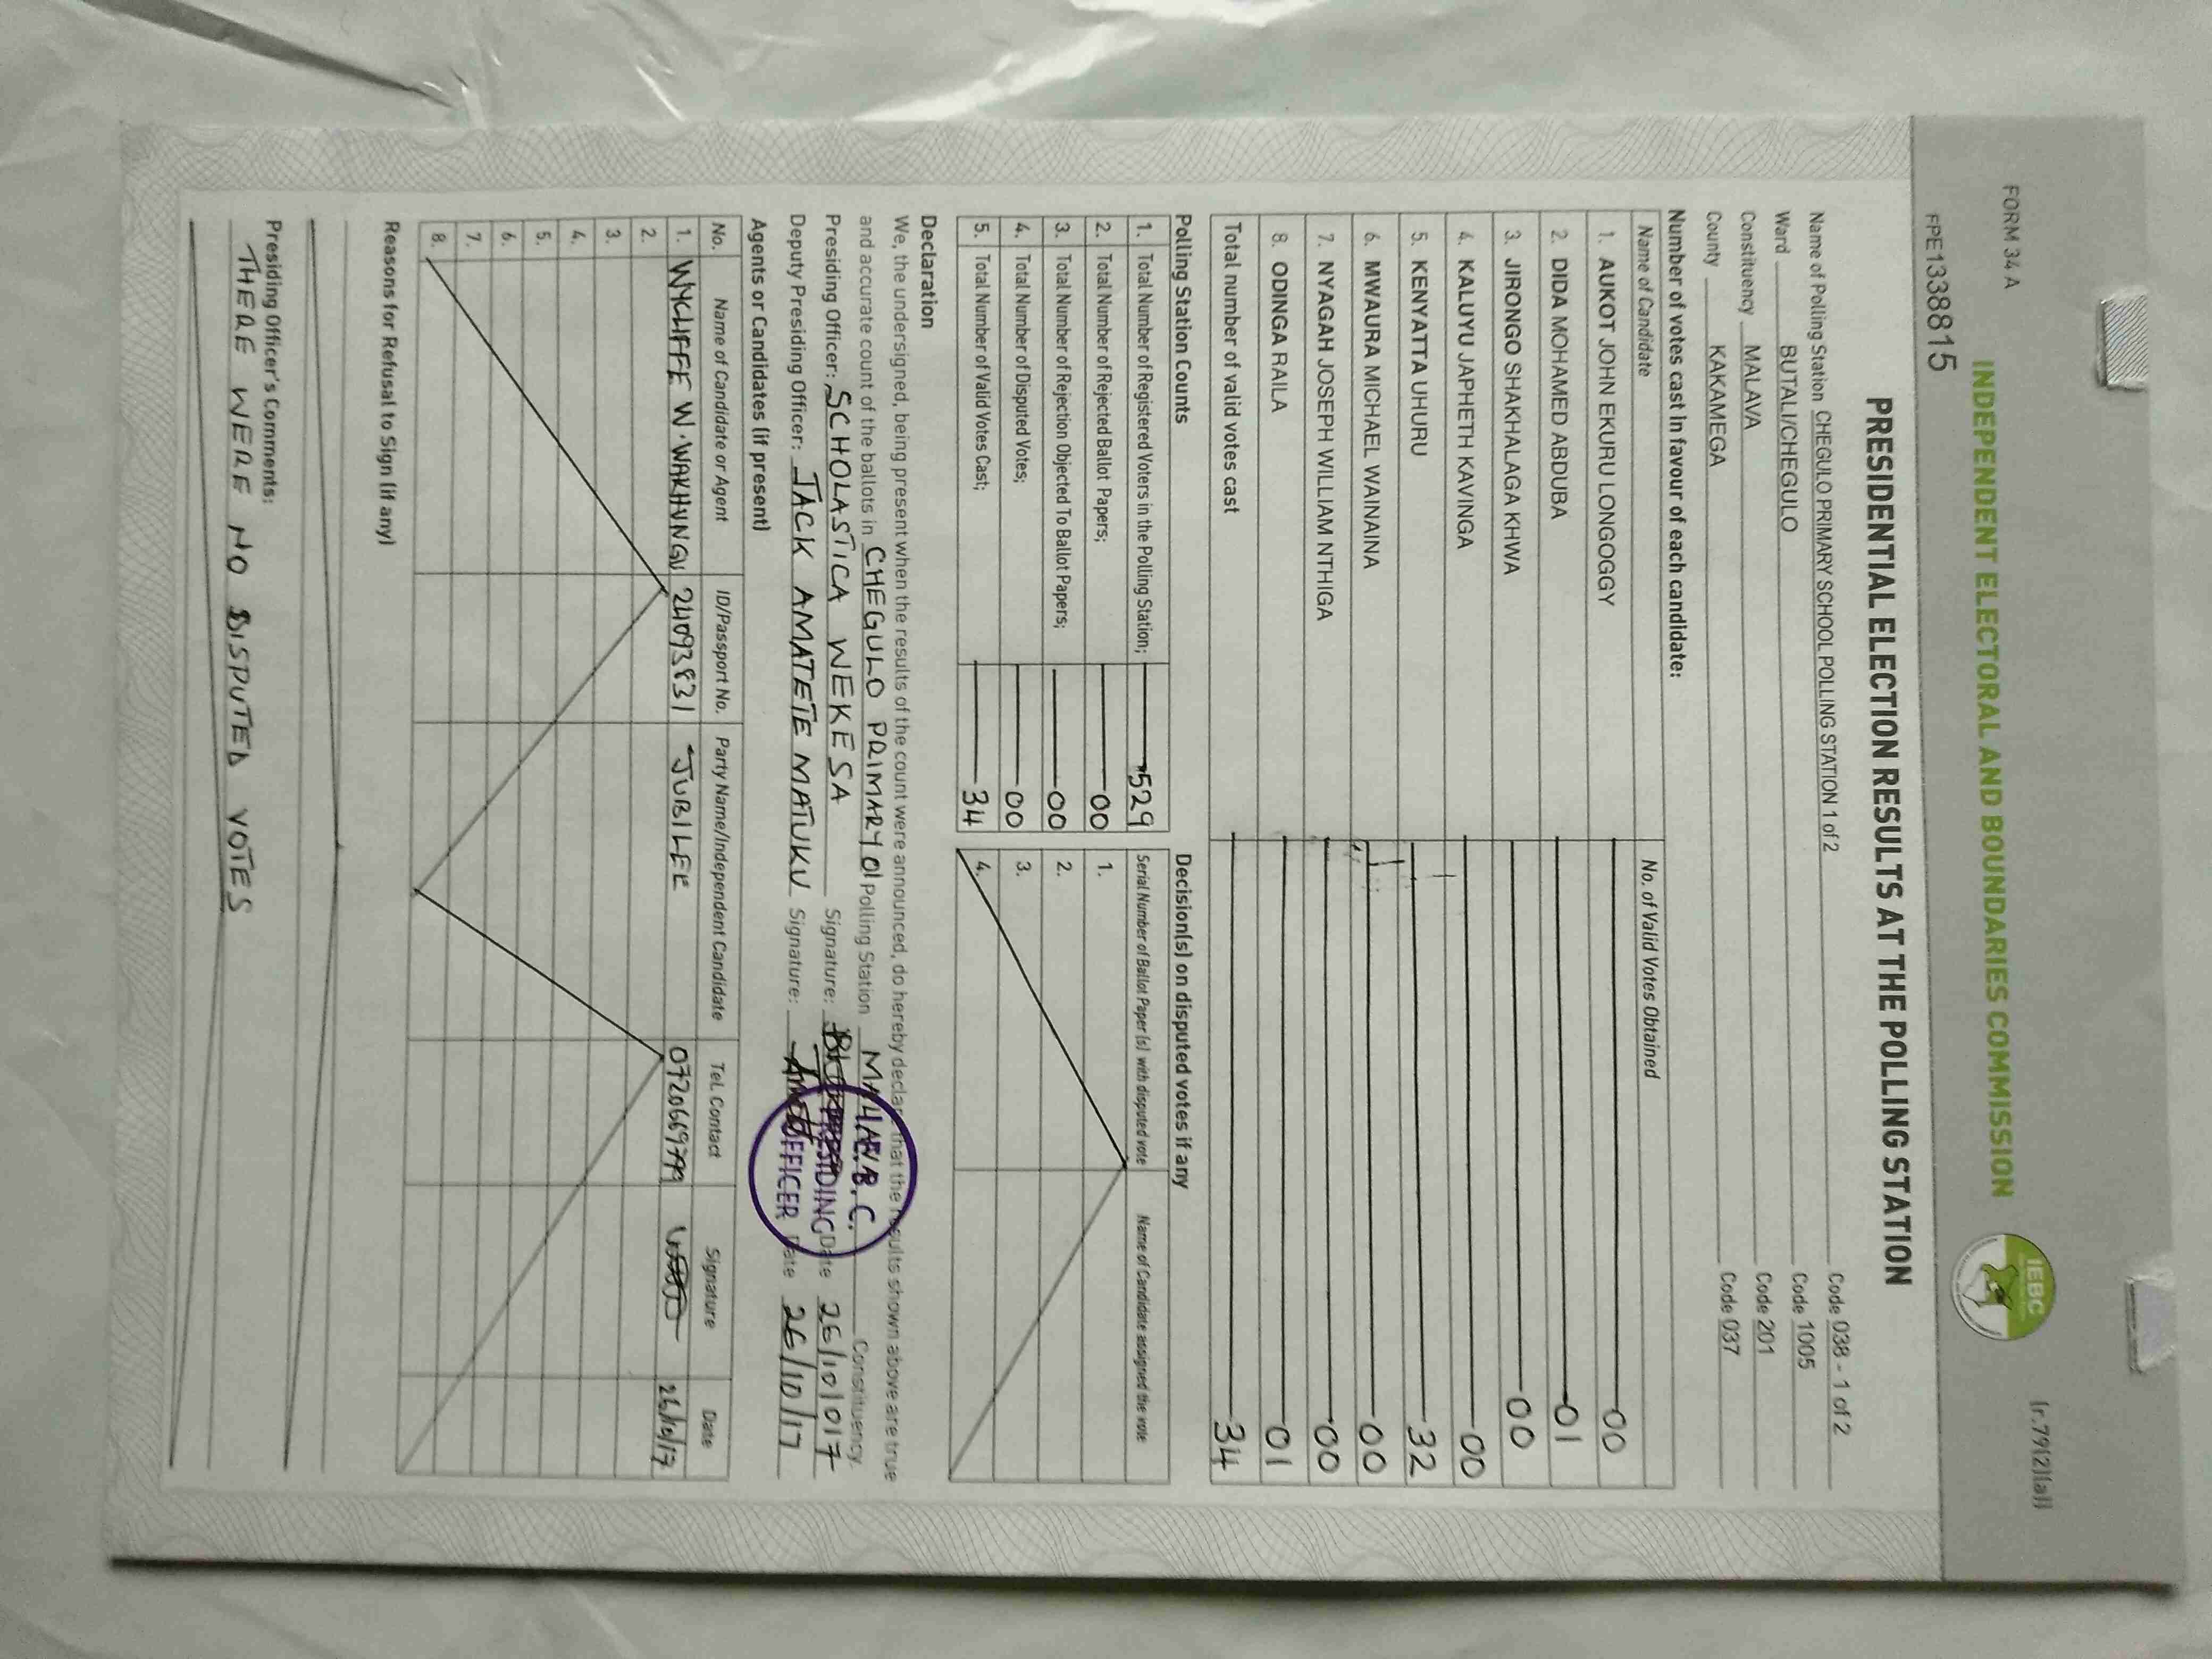 FORM 34 A
(r.79(2)(a))
INDEPENDENT ELECTORAL AND BOUNDARIES COMMISSION
IEBC
PPE133815
PRESIDENTIAL ELECTION RESULTS AT THE POLLING STATION
Name of Polling Station CHEGULO PRIMARY SCHOOL POLLING STATION 1 of 2 Code 038 - 1 of 2
Ward BUTALI/CHEGULO Code 1005
Constituency MALAVA Code 201
County KAKAMEGA Code 037
Number of votes cast in favour of each candidate:
Name of Candidate No. of Valid Votes Obtained
1. AUKOT JOHN EKURU LONGOGGY 00
2. DIDA MOHAMED ABDUBA 01
3. JIRONGO SHAKHALAGA KHWA 00
4. KALUYU JAPHETH KAVINGA 00
5. KENYATTA UHURU 32
6. MWAURA MICHAEL WAINAINA 00
7. NYAGAH JOSEPH WILLIAM NTHIGA 00
8. ODINGA RAILA 01
Total number of valid votes cast 34
Polling Station Counts
1. Total Number of Registered Voters in the Polling Station; 529
2. Total Number of Rejected Ballot Papers; 00
3. Total Number of Rejection Objected To Ballot Papers; 00
4. Total Number of Disputed Votes; 00
5. Total Number of Valid Votes Cast; 34
Decision(s) on disputed votes if any
Serial Number of Ballot Paper (s) with disputed vote Name of Candidate assigned the vote
1.
2.
3.
4.
Declaration
We, the undersigned, being present when the results of the count were announced, do hereby declare that the results shown above are true
and accurate count of the ballots in CHEGULO PRIMARY 01 Polling Station Constituency.
Presiding Officer: SCHOLASTICA WEKESA Signature: Date 26/10/017
Deputy Presiding Officer: JACK AMATETE MATUKU Signature: Date 26/10/17
I.E.B.C.
PRESIDING
OFFICER
Agents or Candidates (if present)
No. Name of Candidate or Agent ID/Passport No. Party Name/Independent Candidate Tel. Contact Signature Date
1. WYCLIFFE W. WAKHUNGU 24093831 JUBILEE 0720669799 26/10/17
2.
3.
4.
5.
6.
7.
8.
Reasons for Refusal to Sign (if any)
Presiding Officer's Comments:
THERE WERE NO DISPUTED VOTES